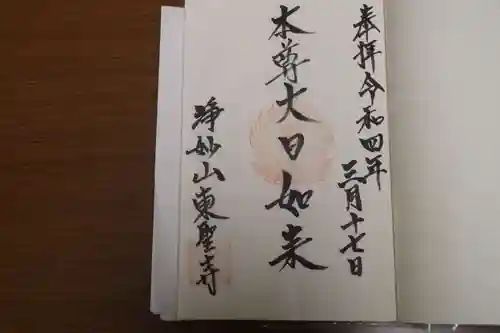 奉拝 令和四年
三月十七日
本尊大日如来
浄妙山東聖寺